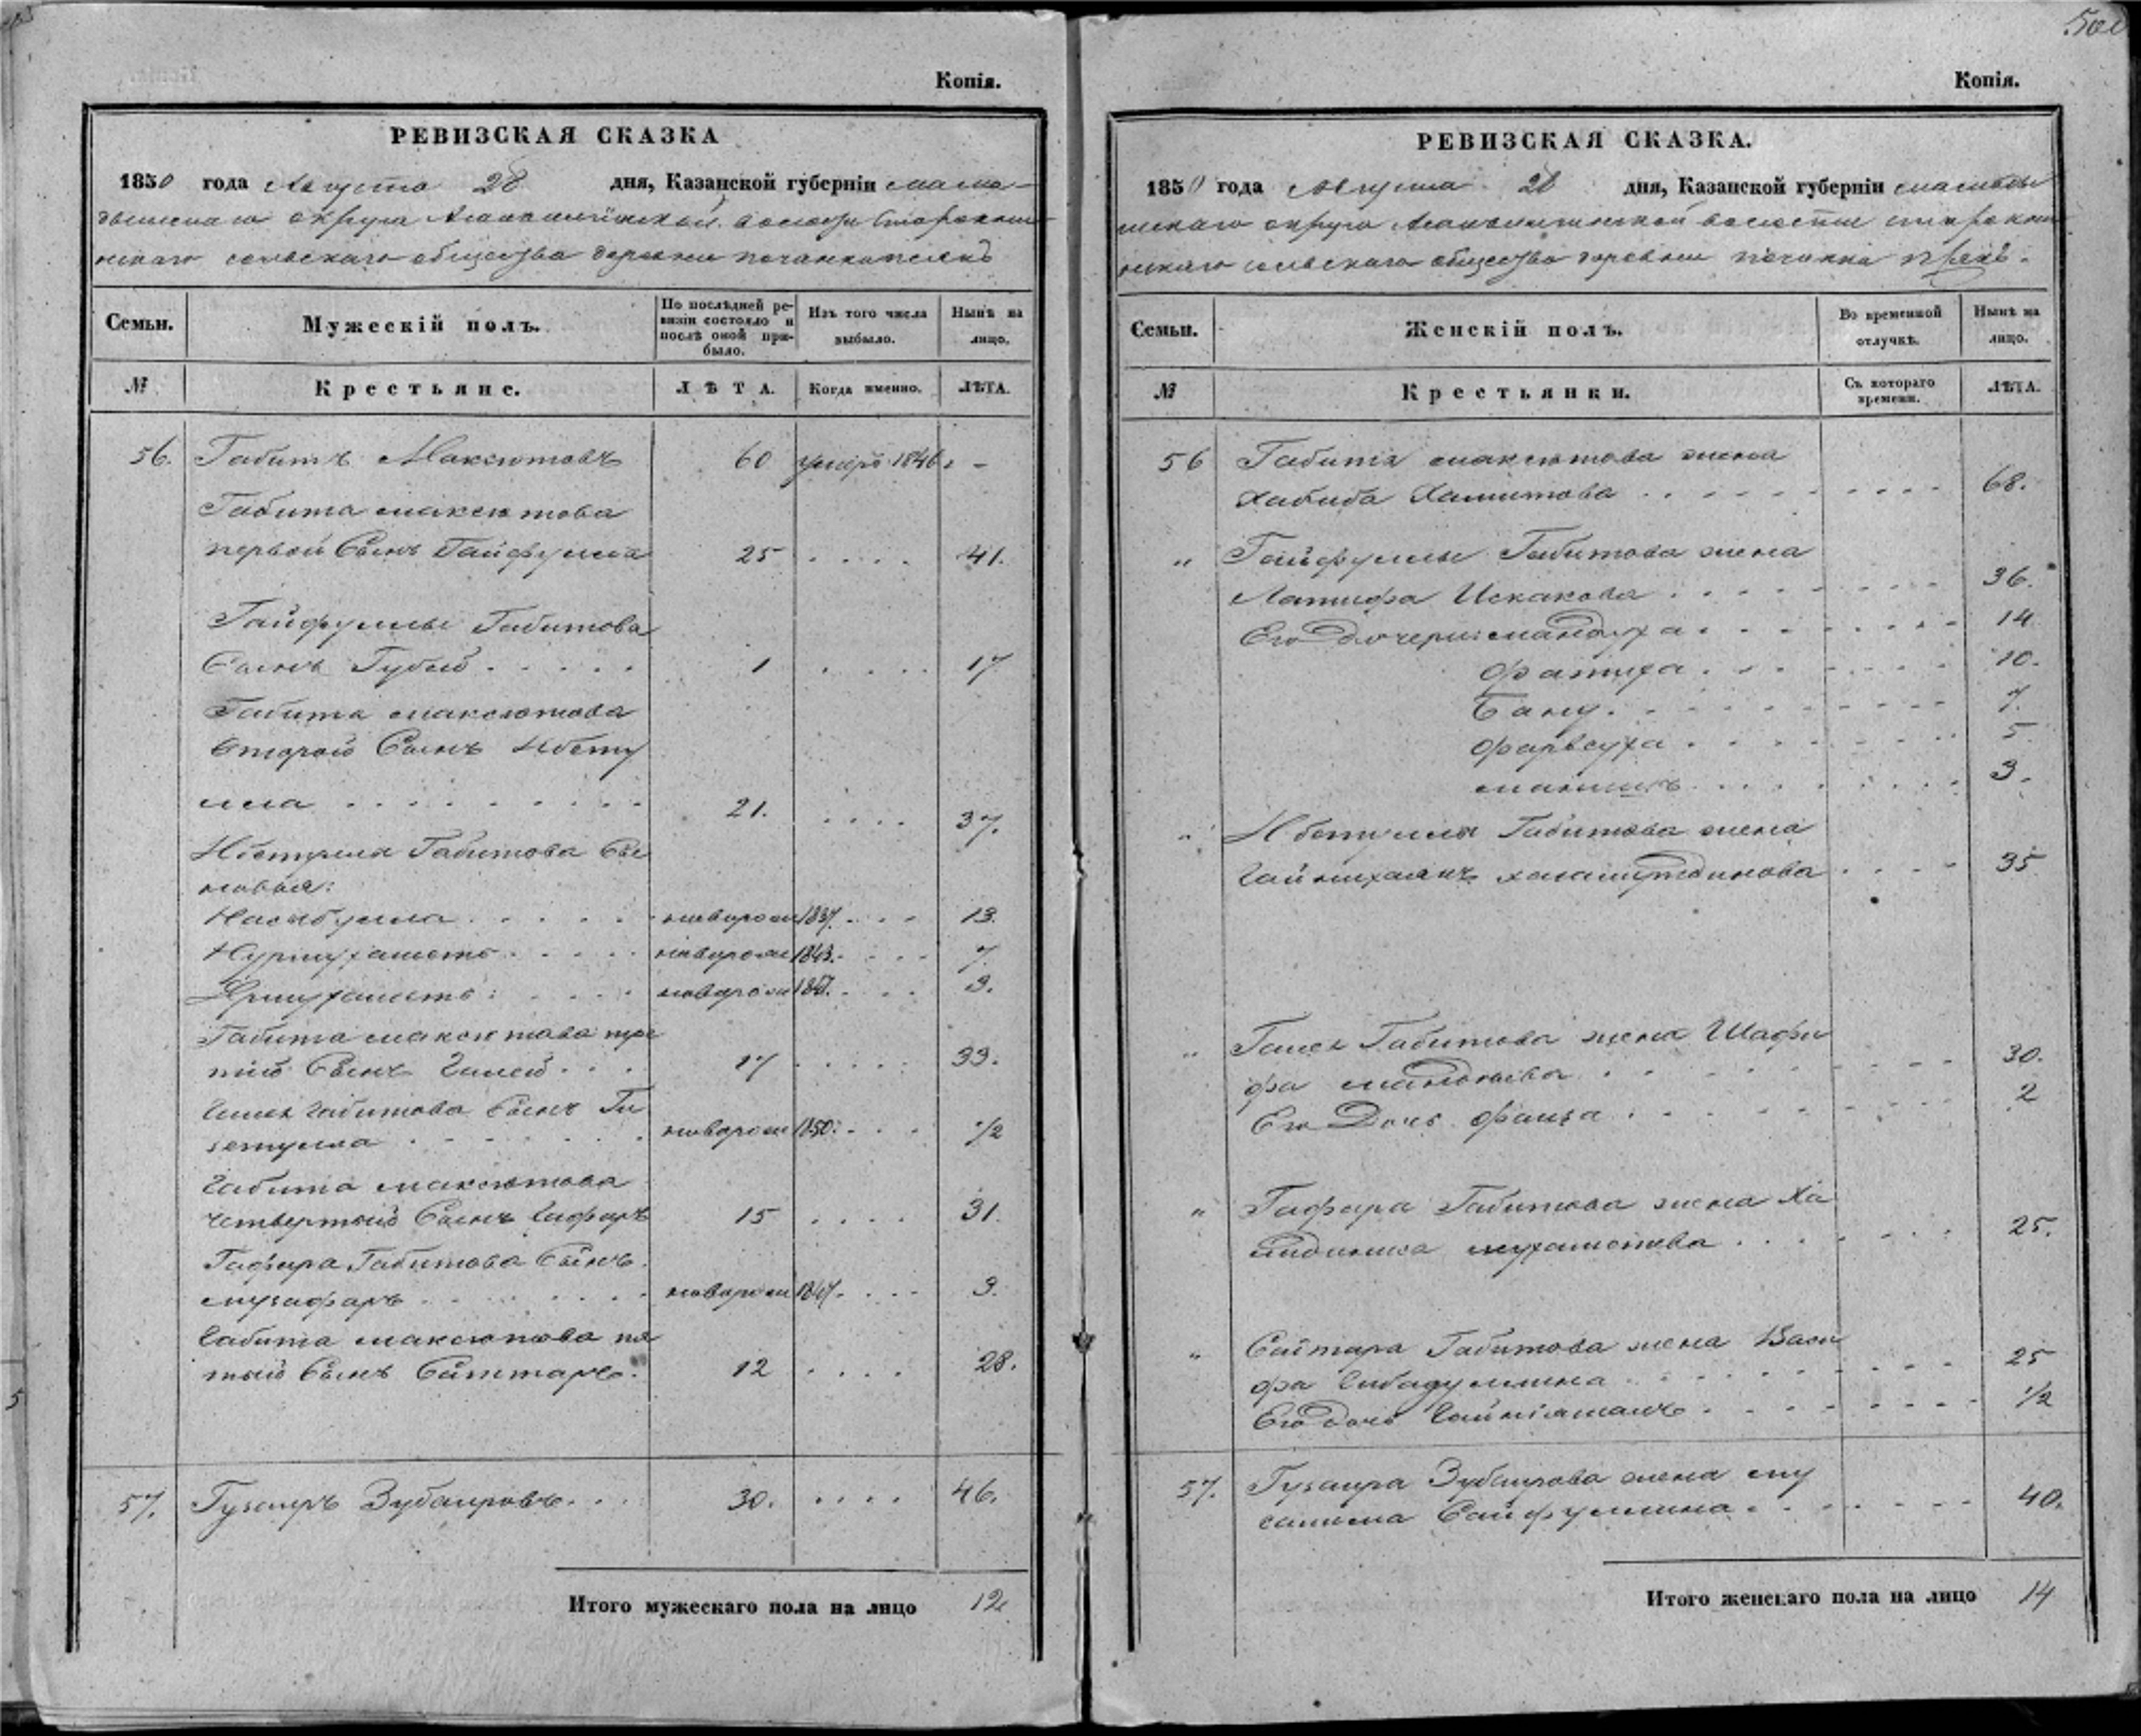 Копія.
РЕВИЗСКАЯ СКАЗКА
1850 года Августа 28 дня, Казанской губерніи мама-
дышскаго округа волости
скаго сельскаго общества деревни починка
Семьи.
Мужескій полъ.
По послѣдней ре-
визіи состояло и
послѣ оной при-
было.
Изъ того числа
выбыло.
Нынѣ на
лицо.
№
Крестьяне.
ЛѢТА.
Когда именно.
ЛѢТА.
56. Габитъ Максютовъ 60 умеръ 1846 -
Габита максютова
первой Сынъ Гайфулла 25 . . . . 41.
Гайфуллы Габитова
Сынъ Губей . . . . . 1 . . . . 17
Габита максютова
Второй Сынъ Ибету
лла . . . . . . . . . 21. . . . . 37.
Ибетулла Габитова Сы
новья:
Насыбулла . . . . . новорож 1837. . . . 13.
Нурмухаметъ . . . . . новорож 1843. . . . 7.
. . . . новорож 1847. . . . 3.
Габита максютова тре
тій Сынъ Галей . . . 17 . . . . 33.
Галея Габитова Сынъ Ги
зетулла . . . . . . . новорож 1850. . . . 1/2
Габита максютова
четвертый Сынъ Гафаръ 15 . . . . 31.
Гафара Габитова Сынъ
музафаръ . . . . . . новорож 1847. . . . 3.
Габита максютова пя
тый Сынъ Саттаръ. 12 . . . . 28.
57. Гузаиръ Зубаировъ. . . 30. . . . . 46.
Итого мужескаго пола на лицо 12
Копія.
РЕВИЗСКАЯ СКАЗКА.
1850 года Августа 28 дня, Казанской губерніи мамады
шскаго округа волости
скаго сельскаго общества деревни починка
Семьи.
Женскій полъ.
Во временной
отлучкѣ.
Нынѣ на
лицо.
№
Крестьянки.
Съ котораго
времени.
ЛѢТА.
56 Габита максютова жена
Хабиба Хамитова . . . . . . . . . 68.
„ Гайфуллы Габитова жена
Латифа Искакова . . . . . . . . 36.
Его Дочери: мандуха . . . . . . . . 14
Фатиха . . . . . . . . 10.
Бану . . . . . . . . . 7.
Фарвсуха . . . . . . . . 5
. . . . . . . . 3.
„ Ибетулла Габитова жена
Гайнихаянъ . . . . 35
„ Галея Габитова жена Шафи
фа . . . . . . . . . 30.
Его Дочь Фаиза . . . . . . . . . 2
„ Гафара Габитова жена Ха
мухаметева . . . . . . . 25.
„ Сатара Габитова жена Вази
фа Гибадуллина . . . . . . . . 25
Его дочь . . . . . . . 1/2
57. Гузаира Зубаирова жена му
Сайфуллина . . . . . . . 40.
Итого женскаго пола на лицо 14